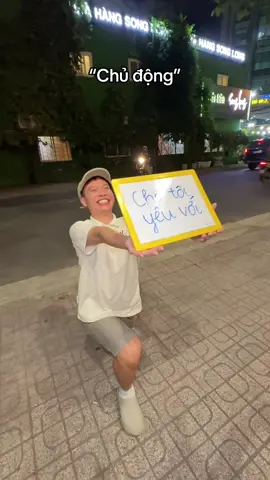 HÀNG SONG
HANG SONG LONG
“Chủ động”
Cho tôi
yêu với